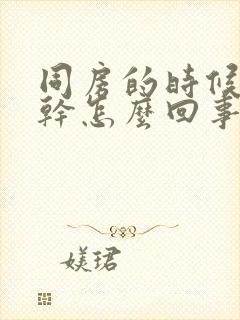 同房的時候
幹怎麼回事
媄珺